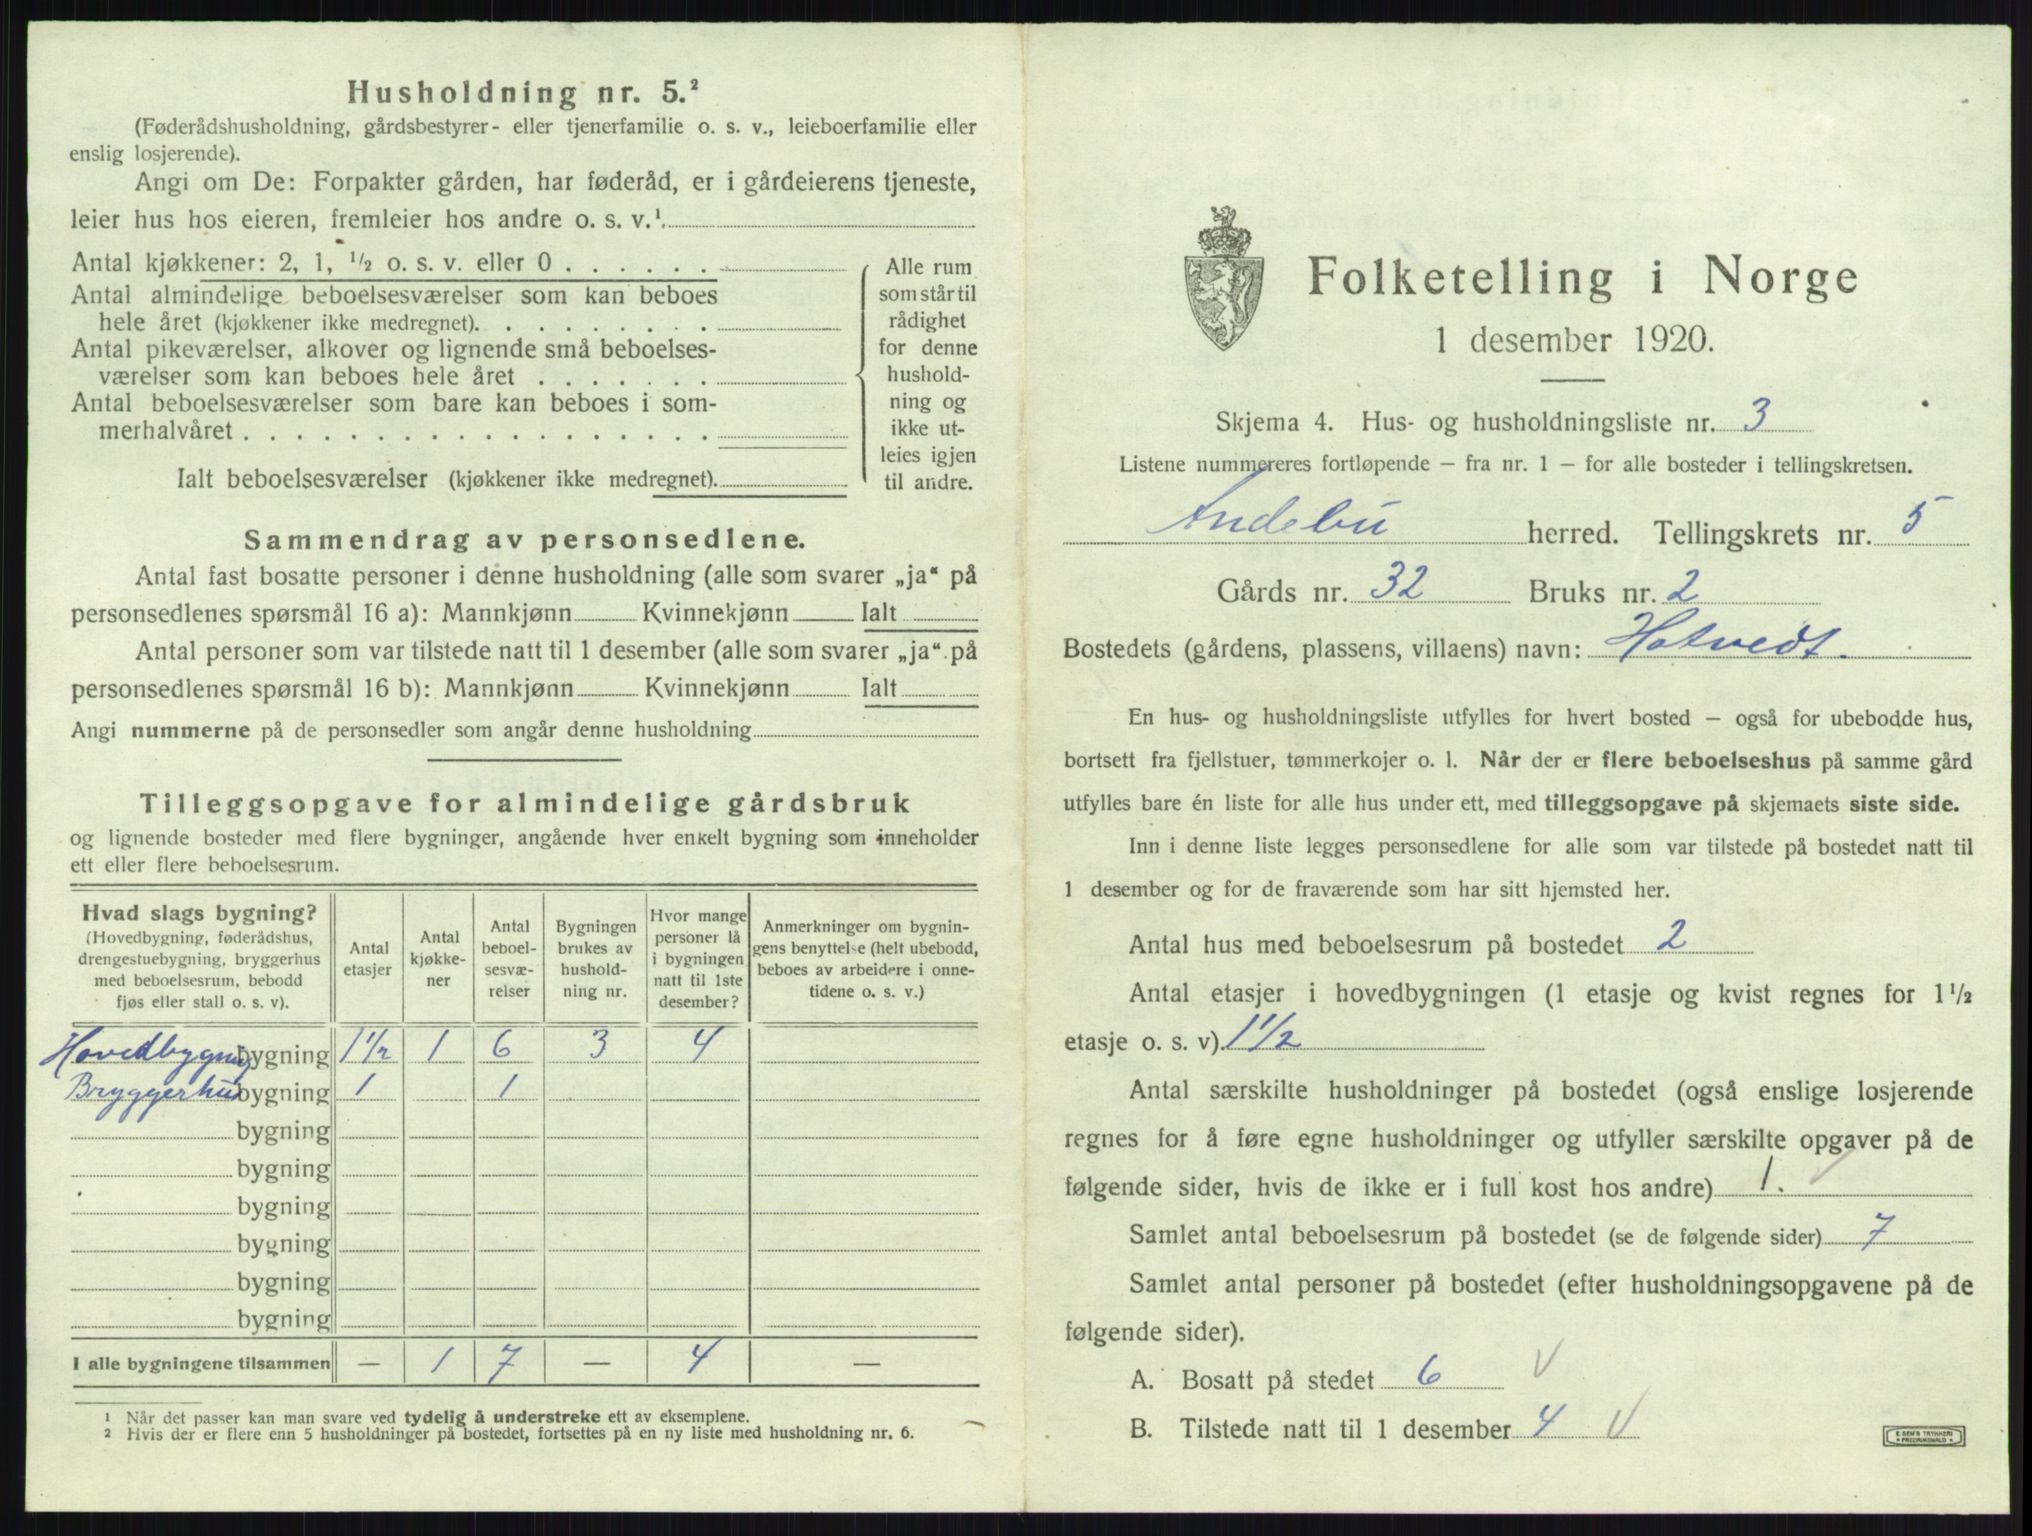 Husholdning nr. 5.²
(Føderådshusholdning, gårdsbestyrer- eller tjenerfamilie o. s. v., leieboerfamilie eller
enslig losjerende).
Angi om De: Forpakter gården, har føderåd, er i gårdeierens tjeneste,
leier hus hos eieren, fremleier hos andre o. s. v.¹
Antal kjøkkener: 2, 1, ½ o. s. v. eller 0 . . . . . .
Antal almindelige beboelsesværelser som kan beboes
hele året (kjøkkener ikke medregnet). . . . . . . . .
Antal pikeværelser, alkover og lignende små beboelses-
værelser som kan beboes hele året . . . . . . .
Antal beboelsesværelser som bare kan beboes i som-
merhalvåret . . . . . . . . . . . . . . . . . .
Ialt beboelsesværelser (kjøkkener ikke medregnet).
Alle rum
som står til
rådighet
for denne
hushold-
ning og
ikke ut-
leies igjen
til andre.
Sammendrag av personsedlene.
Antal fast bosatte personer i denne husholdning (alle som svarer „ja“ på
personsedlenes spørsmål 16 a): Mannkjønn Kvinnekjønn Ialt
Antal personer som var tilstede natt til 1 desember (alle som svarer „ja“ på
personsedlenes spørsmål 16 b): Mannkjønn Kvinnekjønn Ialt
Angi nummerne på de personsedler som angår denne husholdning
Tilleggsopgave for almindelige gårdsbruk
og lignende bosteder med flere bygninger, angående hver enkelt bygning som inneholder
ett eller flere beboelsesrum.
Hvad slags bygning?
(Hovedbygning, føderådshus,
drengestuebygning, bryggerhus
med beboelsesrum, bebodd
fjøs eller stall o. s. v).
Antal
etasjer
Antal
kjøkke-
ner
Antal
beboel-
sesvæ-
relser
Bygningen
brukes av
hushold-
ning nr.
Hvor mange
personer lå
i bygningen
natt til 1ste
desember?
Anmerkninger om bygnin-
gens benyttelse (helt ubebodd,
beboes av arbeidere i onne-
tidene o. s. v.)
Hovedbygning bygning 1½ 1 6 3 4
Bryggerhus bygning 1 1
bygning
bygning
bygning
bygning
bygning
bygning
I alle bygningene tilsammen — 1 7 — 4 —
¹ Når det passer kan man svare ved tydelig å understreke ett av eksemplene.
² Hvis der er flere enn 5 husholdninger på bostedet, fortsettes på en ny liste med husholdning nr. 6.
Folketelling i Norge
1 desember 1920.
Skjema 4. Hus- og husholdningsliste nr. 3
Listene nummereres fortløpende — fra nr. 1 — for alle bosteder i tellingskretsen.
Andebu herred. Tellingskrets nr. 5
Gårds nr. 32 Bruks nr. 2
Bostedets (gårdens, plassens, villaens) navn: Hotvedt.
En hus- og husholdningsliste utfylles for hvert bosted — også for ubebodde hus,
bortsett fra fjellstuer, tømmerkojer o. l. Når der er flere beboelseshus på samme gård
utfylles bare én liste for alle hus under ett, med tilleggsopgave på skjemaets siste side.
Inn i denne liste legges personsedlene for alle som var tilstede på bostedet natt til
1 desember og for de fraværende som har sitt hjemsted her.
Antal hus med beboelsesrum på bostedet 2
Antal etasjer i hovedbygningen (1 etasje og kvist regnes for 1½
etasje o. s. v). 1½
Antal særskilte husholdninger på bostedet (også enslige losjerende
regnes for å føre egne husholdninger og utfyller særskilte opgaver på de
følgende sider, hvis de ikke er i full kost hos andre) 1.
Samlet antal beboelsesrum på bostedet (se de følgende sider) 7
Samlet antal personer på bostedet (efter husholdningsopgavene på de
følgende sider).
A. Bosatt på stedet 6
B. Tilstede natt til 1 desember 4
E. SEM'S TRYKKERI
FREDRIKSHALD